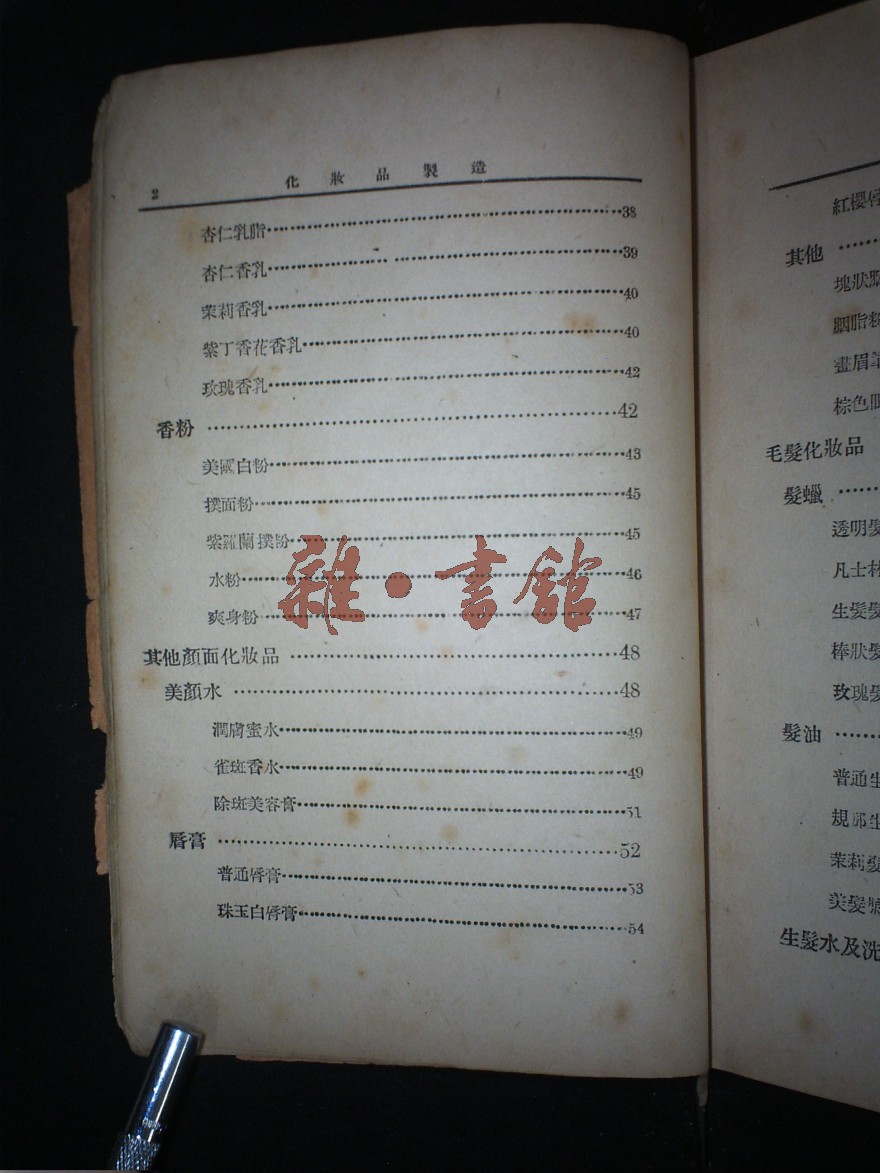 2 化妝品製造
杏仁乳脂 38
杏仁香乳 39
茉莉香乳 40
紫丁香花香乳 40
玫瑰香乳 42
香粉 42
美國白粉 43
撲面粉 45
紫羅蘭撲粉 45
水粉 46
爽身粉 47
其他顏面化妝品 48
美顏水 48
潤膚蜜水 49
雀斑香水 49
除斑美容膏 51
唇膏 52
普通唇膏 53
珠玉白唇膏 54
雜·書館
紅櫻唇
其他
塊狀
胭脂粉
畫眉
棕色
毛髮化妝品
髮蠟
透明髮
凡士林
生髮髮
棒狀髮
玫瑰髮
髮油
普通生
規那生
茉莉髮
美髮
生髮水及洗